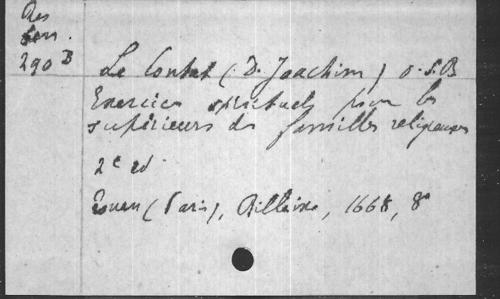 Res
290 B
Le Contat (D. Joachim) o.S.B
Exercices spirituels pour les
supérieurs des familles religieuses
2e ed.
Rouen (Paris), Billaine, 1668, 8º